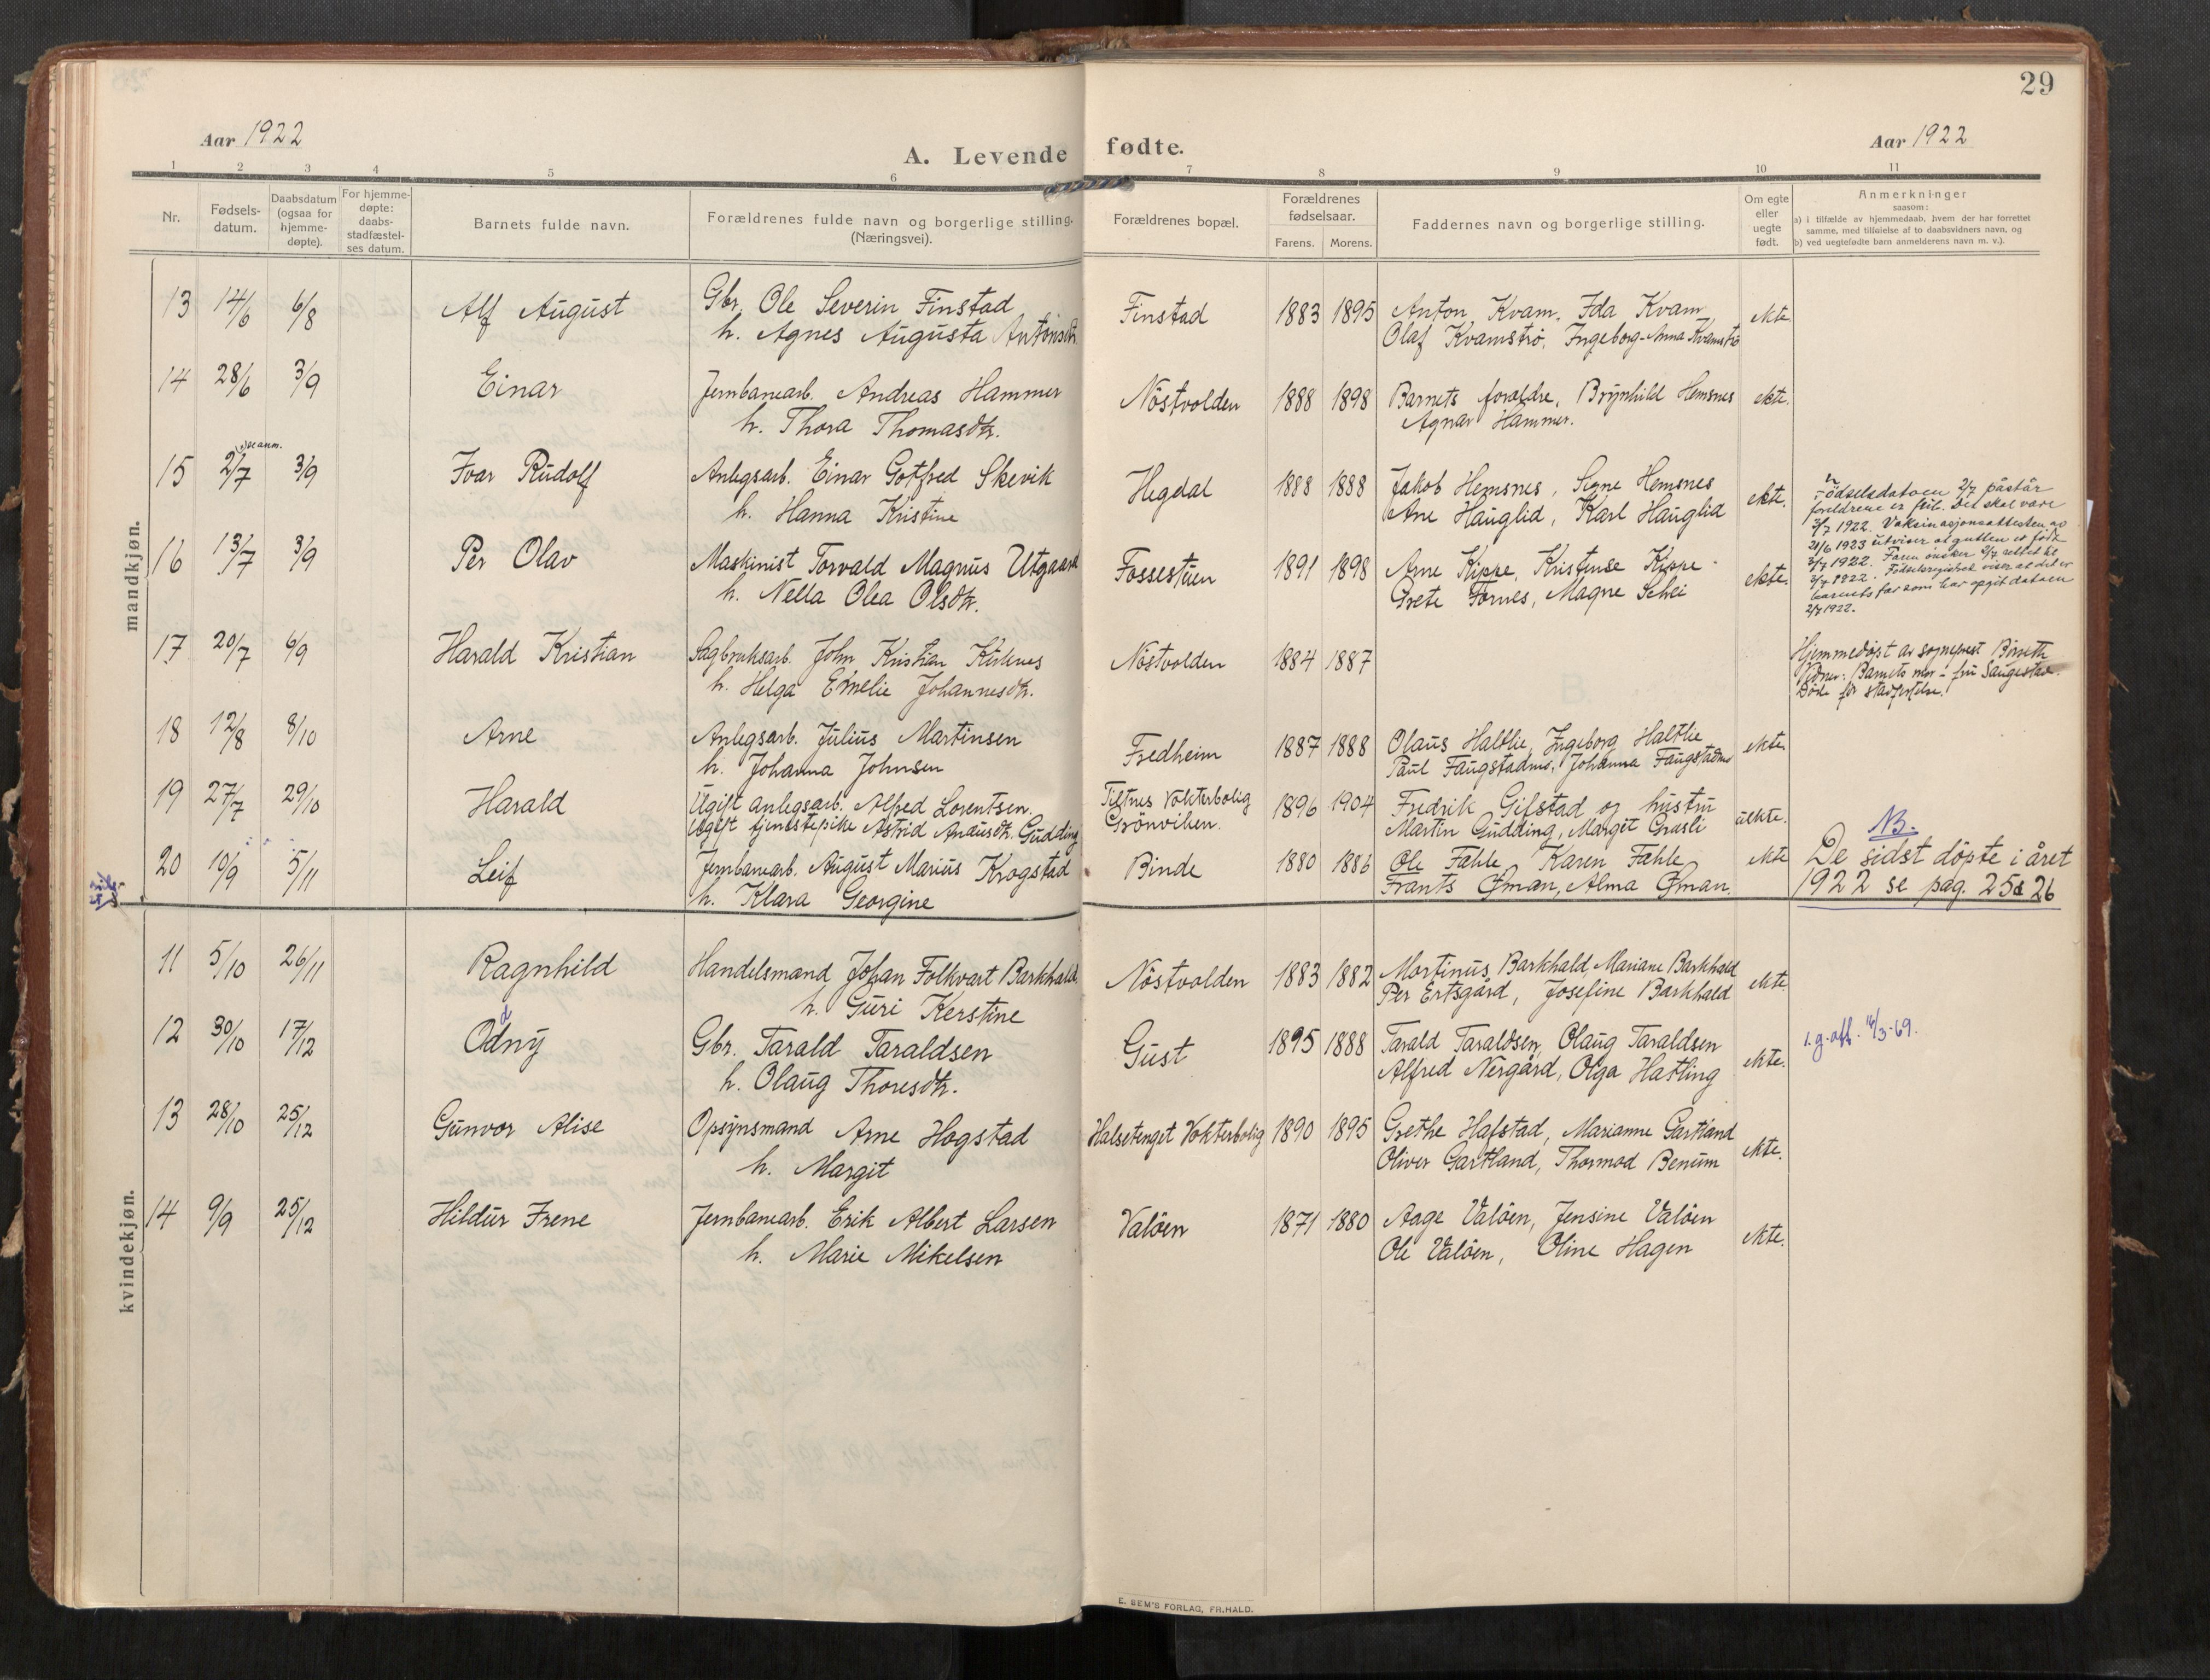 29
Aar 1922
A. Levende fødte.
Aar 1922
1 2 3 4 5 6 7 8 9 10 11
Nr.
Fødsels-
datum.
Daabsdatum
(ogsaa for
hjemme-
døpte).
For hjemme-
døpte:
daabs-
stadfæstel-
ses datum.
Barnets fulde navn.
Forældrenes fulde navn og borgerlige stilling.
(Næringsvei).
Forældrenes bopæl.
Forældrenes
fødselsaar.
Farens. Morens.
Faddernes navn og borgerlige stilling.
Om egte
eller
uegte
født.
Anmerkninger
saasom:
a) i tilfælde av hjemmedaab, hvem der har forrettet
samme, med tilføielse af to daabsvidners navn, og
b) ved uegtefødte barn anmelderens navn m. v.).
mandkjøn.
13 14/6 6/8 Alf August Gbr. Ole Severin Finstad Finstad 1883 1895 Anton Kvam, Ida Kvam, ekte
h. Agnes Augusta Antonsdtr. Olaf Kvamstrø, Ingeborg-Anna Kvamstrø
14 28/6 3/9 Einar Jernbanearb. Andreas Hammer Nöstvolden 1888 1898 Barnets forældre, Brynhild Hemsnes ekte.
h. Thora Thomasdtr. Agnar Hammer.
se anm.
15 2/7 3/9 Ivar Rudolf Anlegsarb. Einar Gotfred Skevik Hegdal 1888 1888 Jakob Hemsnes, Signe Hemsnes ekte.
h. Hanna Kristine Arne Hauglid, Karl Hauglid
Fødselsdatoen 2/7 påstår
foreldrene er feil. Det skal være
3/7 1922. Vaksinasjonsattesten av
21/6 1923 utviser at gutten er født
3/7 1922. Faren ønsker 2/7 rettet til
3/7 1922. Fødselsregistret viser at det er
barnets far som har opgit datoen
2/7 1922.
16 13/7 3/9 Per Olav Maskinist Torvald Magnus Utgaard Fossestuen 1891 1898 Arne Kippe, Kristense Kippe ekte.
h. Nella Olea Olsdtr. Grete Fornes, Magne Schei
17 20/7 6/9 Harald Kristian Sagbruksarb. John Kristian Kirknes Nöstvolden 1884 1887
h. Helga Emelie Johannesdtr.
Hjemmedøpt av sogneprest
Vidner: Barnets mor - fru Saugestad.
Døde før stadfestelse.
18 12/8 8/10 Arne Anlegsarb. Julius Martinsen Fredheim 1887 1888 Olaus Haltlie, Ingeborg Haltlie ekte
h. Johanna Johnsen Paul Faugstadmo, Johanna Faugstadmo
19 27/7 29/10 Harald Ugift anlegsarb. Alfred Lorentsen. Tiltnes Vokterbolig 1896 1904 Fredrik Gifstad og hustru uekte.
Ugift tjenestepike Astrid Andersdtr. Gudding Grönviken. Martin Gudding, Margit Grasli
20 10/9 5/11 Leif Jernbanearb. August Marius Krogstad Binde 1880 1886 Ole Fahle, Karen Fahle, ekte
h. Klara Georgine Frants Öfman, Alma Öfman.
NB.
De sidst döpte i året
1922 se pag. 25 & 26
kvindekjøn.
11 5/10 26/11 Ragnhild Handelsmand Johan Folkvart Barkhald. Nöstvolden 1883 1882 Martinus Barkhald, Mariane Barkhald ekte.
h. Guri Kerstine Per Ertsgård, Josefine Barkhald
d
12 30/10 17/12 Odny Gbr. Tarald Taraldsen Gust 1895 1888 Tarald Taraldsen, Olaug Taraldsen ekte. 1. g. att. 14/3-69.
h. Olaug Thoresdtr. Alfred Nergård, Olga Hatling
13 28/10 25/12 Gunvor Alise Opsynsmand Arne Hogstad Halsetenget Vokterbolig 1890 1895 Grethe Hafstad, Marianne Gartland ekte.
h. Margit Oliver Gartland, Thormod Benum
14 9/9 25/12 Hildur Irene Jernbanearb. Erik Albert Larsen Valöen 1871 1880 Aage Valöen, Jensine Valöen ekte.
h. Marie Mikelsen Ole Valöen, Oline Hagen
E. SEM'S FORLAG, FR.HALD.